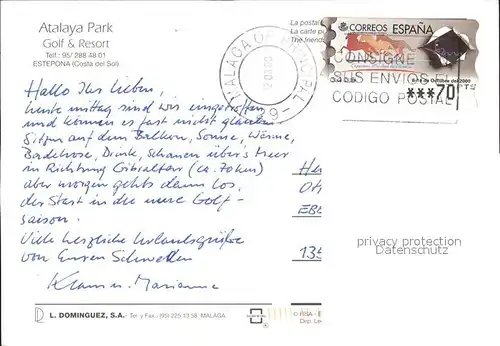 Atalaya Park
Golf & Resort
Tell.: 95/ 288 48 01
ESTEPONA (Costa del Sol)
La postal
La carte p
The friend
CORREOS ESPAÑA
***70 PTS
CONSIGNE
SUS ENVIOS
CODIGO POSTAL
MALAGA
PAL
-29-
Hallo Ihr Lieben,
heute mittag sind wir eingetroffen
und können es fast nicht glauben
Sitzen auf dem Balkon, Sonne, Wärme,
Badehose, Drink, Schauen über's Meer
in Richtung Gibraltar (ca. 70 km)
aber morgen geht's dann los.
der Start in die neue Golf-
saison.
Viele herzliche Urlaubsgrüße
von Euren
Klaus u. Marianne
He
EB
135
privacy protection
Datenschutz
L. DOMINGUEZ, S.A. Tel. y Fax.: (95) 225 13 58 MALAGA
© FISA - E
Dep. Le